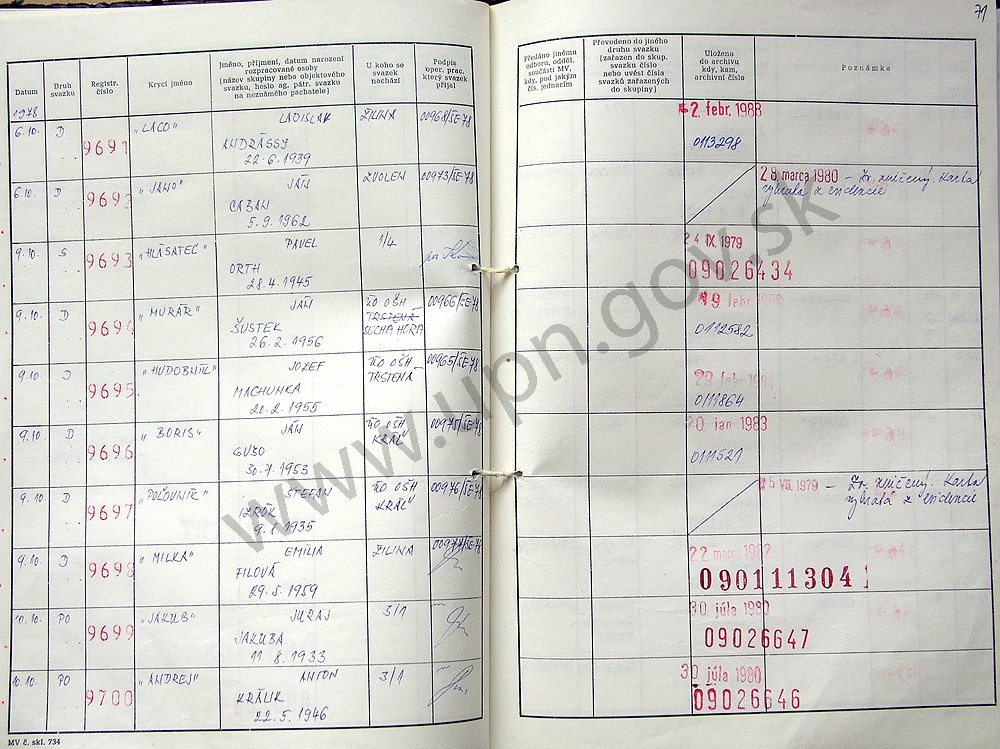 71
Datum
Druh svazku
Registr. číslo
Krycí jméno
Jméno, příjmení, datum narození
rozpracované osoby
(název skupiny nebo objektového
svazku, heslo ag. pátr. svazku
na neznámého pachatele)
U koho se
svazek
nachází
Podpis
oper. prac.
který svazek
přijal
Předáno jinému
odboru, odděl.
součásti MV,
kdy, pod jakým
čís. jednacím
Převedeno do jiného
druhu svazku
(zařazen do skup.
svazku číslo
nebo uvést čísla
svazků zařazených
do skupiny)
Uloženo
do archivu
kdy, kam,
archivní číslo
Poznámka
1978
6.10. D 9691 „LACO" LADISLAV ŽILINA 00968/SE-78 2. febr. 1988
ANDRÁSSY 0113298
22.6.1939
6.10. D 9692 „JANO" JÁN ZVOLEN 00973/SE-78 28 marca 1980 – Zv. zničený. Karta
CABAN vybratá z evidencie
5.9.1962
9.10. S 9693 „HLÁSATEĽ" PAVEL 1/4 24 IX. 1979
ORTH 09026434
28.4.1945
9.10. D 9694 „MURÁR" JÁN ÚO OŠH 00966/SE-78 19 febr
ŠUSTEK TRSTENÁ 0112582
26.2.1956 SUCHÁ HORA
9.10. D 9695 „HUDOBNÍK" JOZEF ÚO OŠH 00965/SE-78
MACHUNKA TRSTENÁ 0111864
20.2.1955
9.10. D 9696 „BORIS" JÁN ÚO OŠH 00975/SE-78 20 jan 1983
GUŽO KRÁĽ 0111521
30.7.1953
9.10. D 9697 „POĽOVNÍK" ŠTEFAN ÚO OŠH 00976/SE-78 15 VIII. 1979 – Zv. zničený. Karta
IZRÓK KRÁĽ vybratá z evidencie
9.1.1935
9.10. D 9698 „MILKA" EMÍLIA ŽILINA 00977/SE-78 22 marca 1982
FILOVÁ 090111304
29.5.1959
10.10. PO 9699 „JAKUB" JURAJ 3/1 30 júla 1980
JAKUBA 09026647
11.8.1933
10.10. PO 9700 „ANDREJ" ANTON 3/1 30 júla 1980
KRÁLIK 09026646
22.5.1946
MV č. skl. 734
www.upn.gov.sk